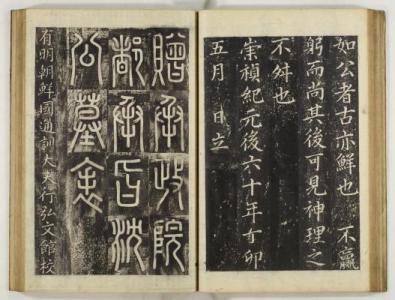 如公者古亦鮮也 不贏
躬而尚其後可見神理之
不舛也
崇禎紀元後六十年丁卯
五月 日立
贈承政院
都承旨沈
公墓表
有明朝鮮國通訓大夫行弘文館校